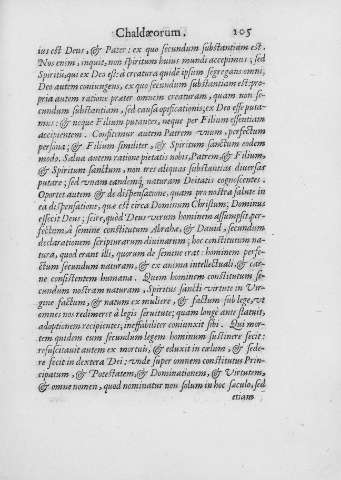 Chaldæorum. 105
ius est Deus, & Pater: ex quo secundum substantiam est.
Nos enim, inquit, non spiritum huius mundi accepimus; sed
Spiritū, qui ex Deo est: à creatura quidē ipsum segregans omni,
Deo autem coniungens, ex quo secundum substantiam est: pro-
pria autem ratione præter omnem creaturam, quam non se-
cundum substantiam, sed causa opificationis, ex Deo esse puta-
mus: & neque Filium putantes, neque per Filium essentiam
accipientem. Confitemur autem Patrem vnum, perfectum
persona; & Filium similiter, & Spiritum sanctum eodem
modo. Salua autem ratione pietatis nobis, Patrem, & Filium,
& Spiritum sanctum, non tres aliquas substantias diuersas
putare; sed vnam eandemq́; naturam Deitatis cognoscentes.
Oportet autem & de dispensatione, quam pro nostra salute in
ea dispensatione, quæ est circa Dominum Christum; Dominus
effecit Deus; scire, quòd Deus verum hominem assumpsit per-
fectum, à semine constitutum Abrahæ, & Dauid, secundum
declarationem scripturarum diuinarum; hoc constitutum na-
tura, quod erant illi, quorum de semine erat: hominem perfe-
ctum secundum naturam, & ex anima intellectuali, & car-
ne consistentem humana. Quem hominem constitutum se-
cundum nostram naturam, Spiritus sancti virtute in Vir-
gine factum, & natum ex muliere, & factum sub lege, vt
omnes nos redimeret à legis seruitute; quam longe ante statuit,
adoptionem recipientes; ineffabiliter coniunxit sibi. Qui mor-
tem quidem eum secundum legem hominum sustinere fecit:
resuscitauit autem ex mortuis, & eduxit in cælum, & sede-
re fecit in dextera Dei: vnde super omnem constitutus Prin-
cipatum, & Potestatem, & Dominationem, & Virtutem,
& omne nomen, quod nominatur non solum in hoc sæculo, sed
etiam